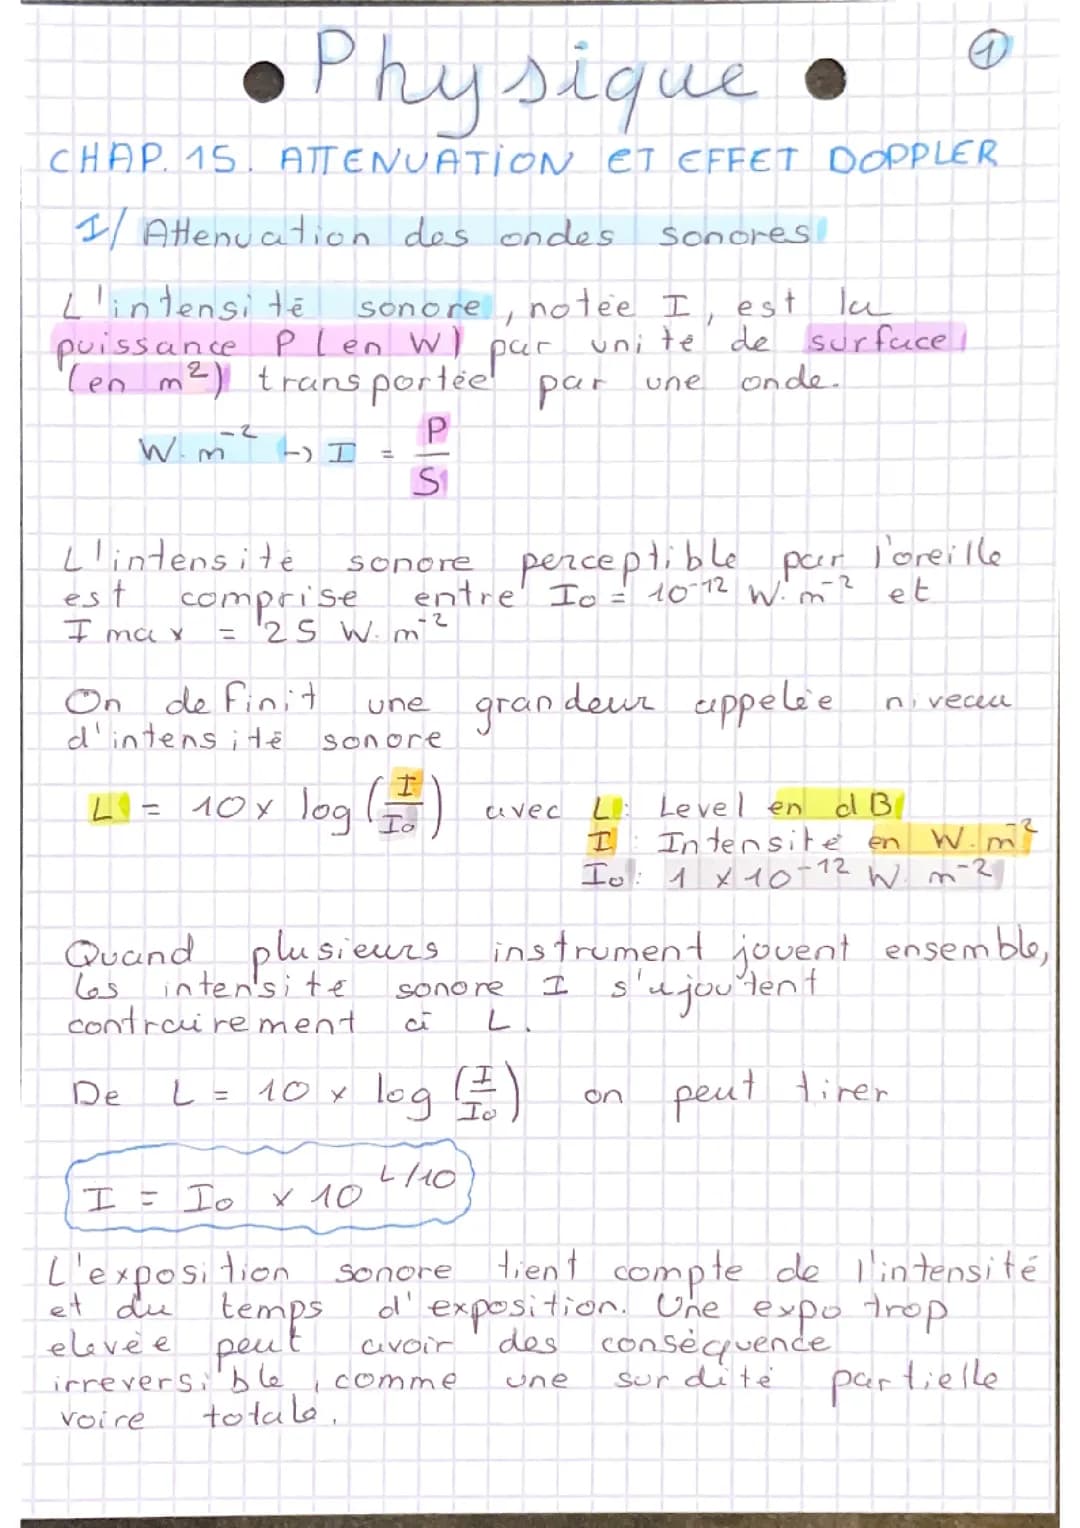 • Physique • ①
CHAP. 15. ATTENUATION ET EFFET DOPPLER
I/ Attenuation des ondes sonores
L'intensité sonore, notée I, est la
puissance P (en W) par unité de surface
(en m²) transportée par une onde.
W.m⁻² ↦ I = P/S
L'intensité sonore perceptible par l'oreille
est comprise entre I₀ = 10⁻¹² W.m⁻² et
I max = 25 W.m⁻²
On definit une grandeur appelée niveau
d'intensité sonore
L = 10 × log (I/I₀) avec L : Level en dB
I : Intensité en W.m⁻²
I₀ : 1 × 10⁻¹² W.m⁻²
Quand plusieurs instrument jouent ensemble,
les intensité sonore I s'ajoutent
contrairement à L.
De L = 10 × log (I/I₀) on peut tirer
I = I₀ × 10^(L/10)
L'exposition sonore tient compte de l'intensité
et du temps d'exposition. Une expo trop
elevée peut avoir des conséquence
irreversible, comme une surdité partielle
voire totale.